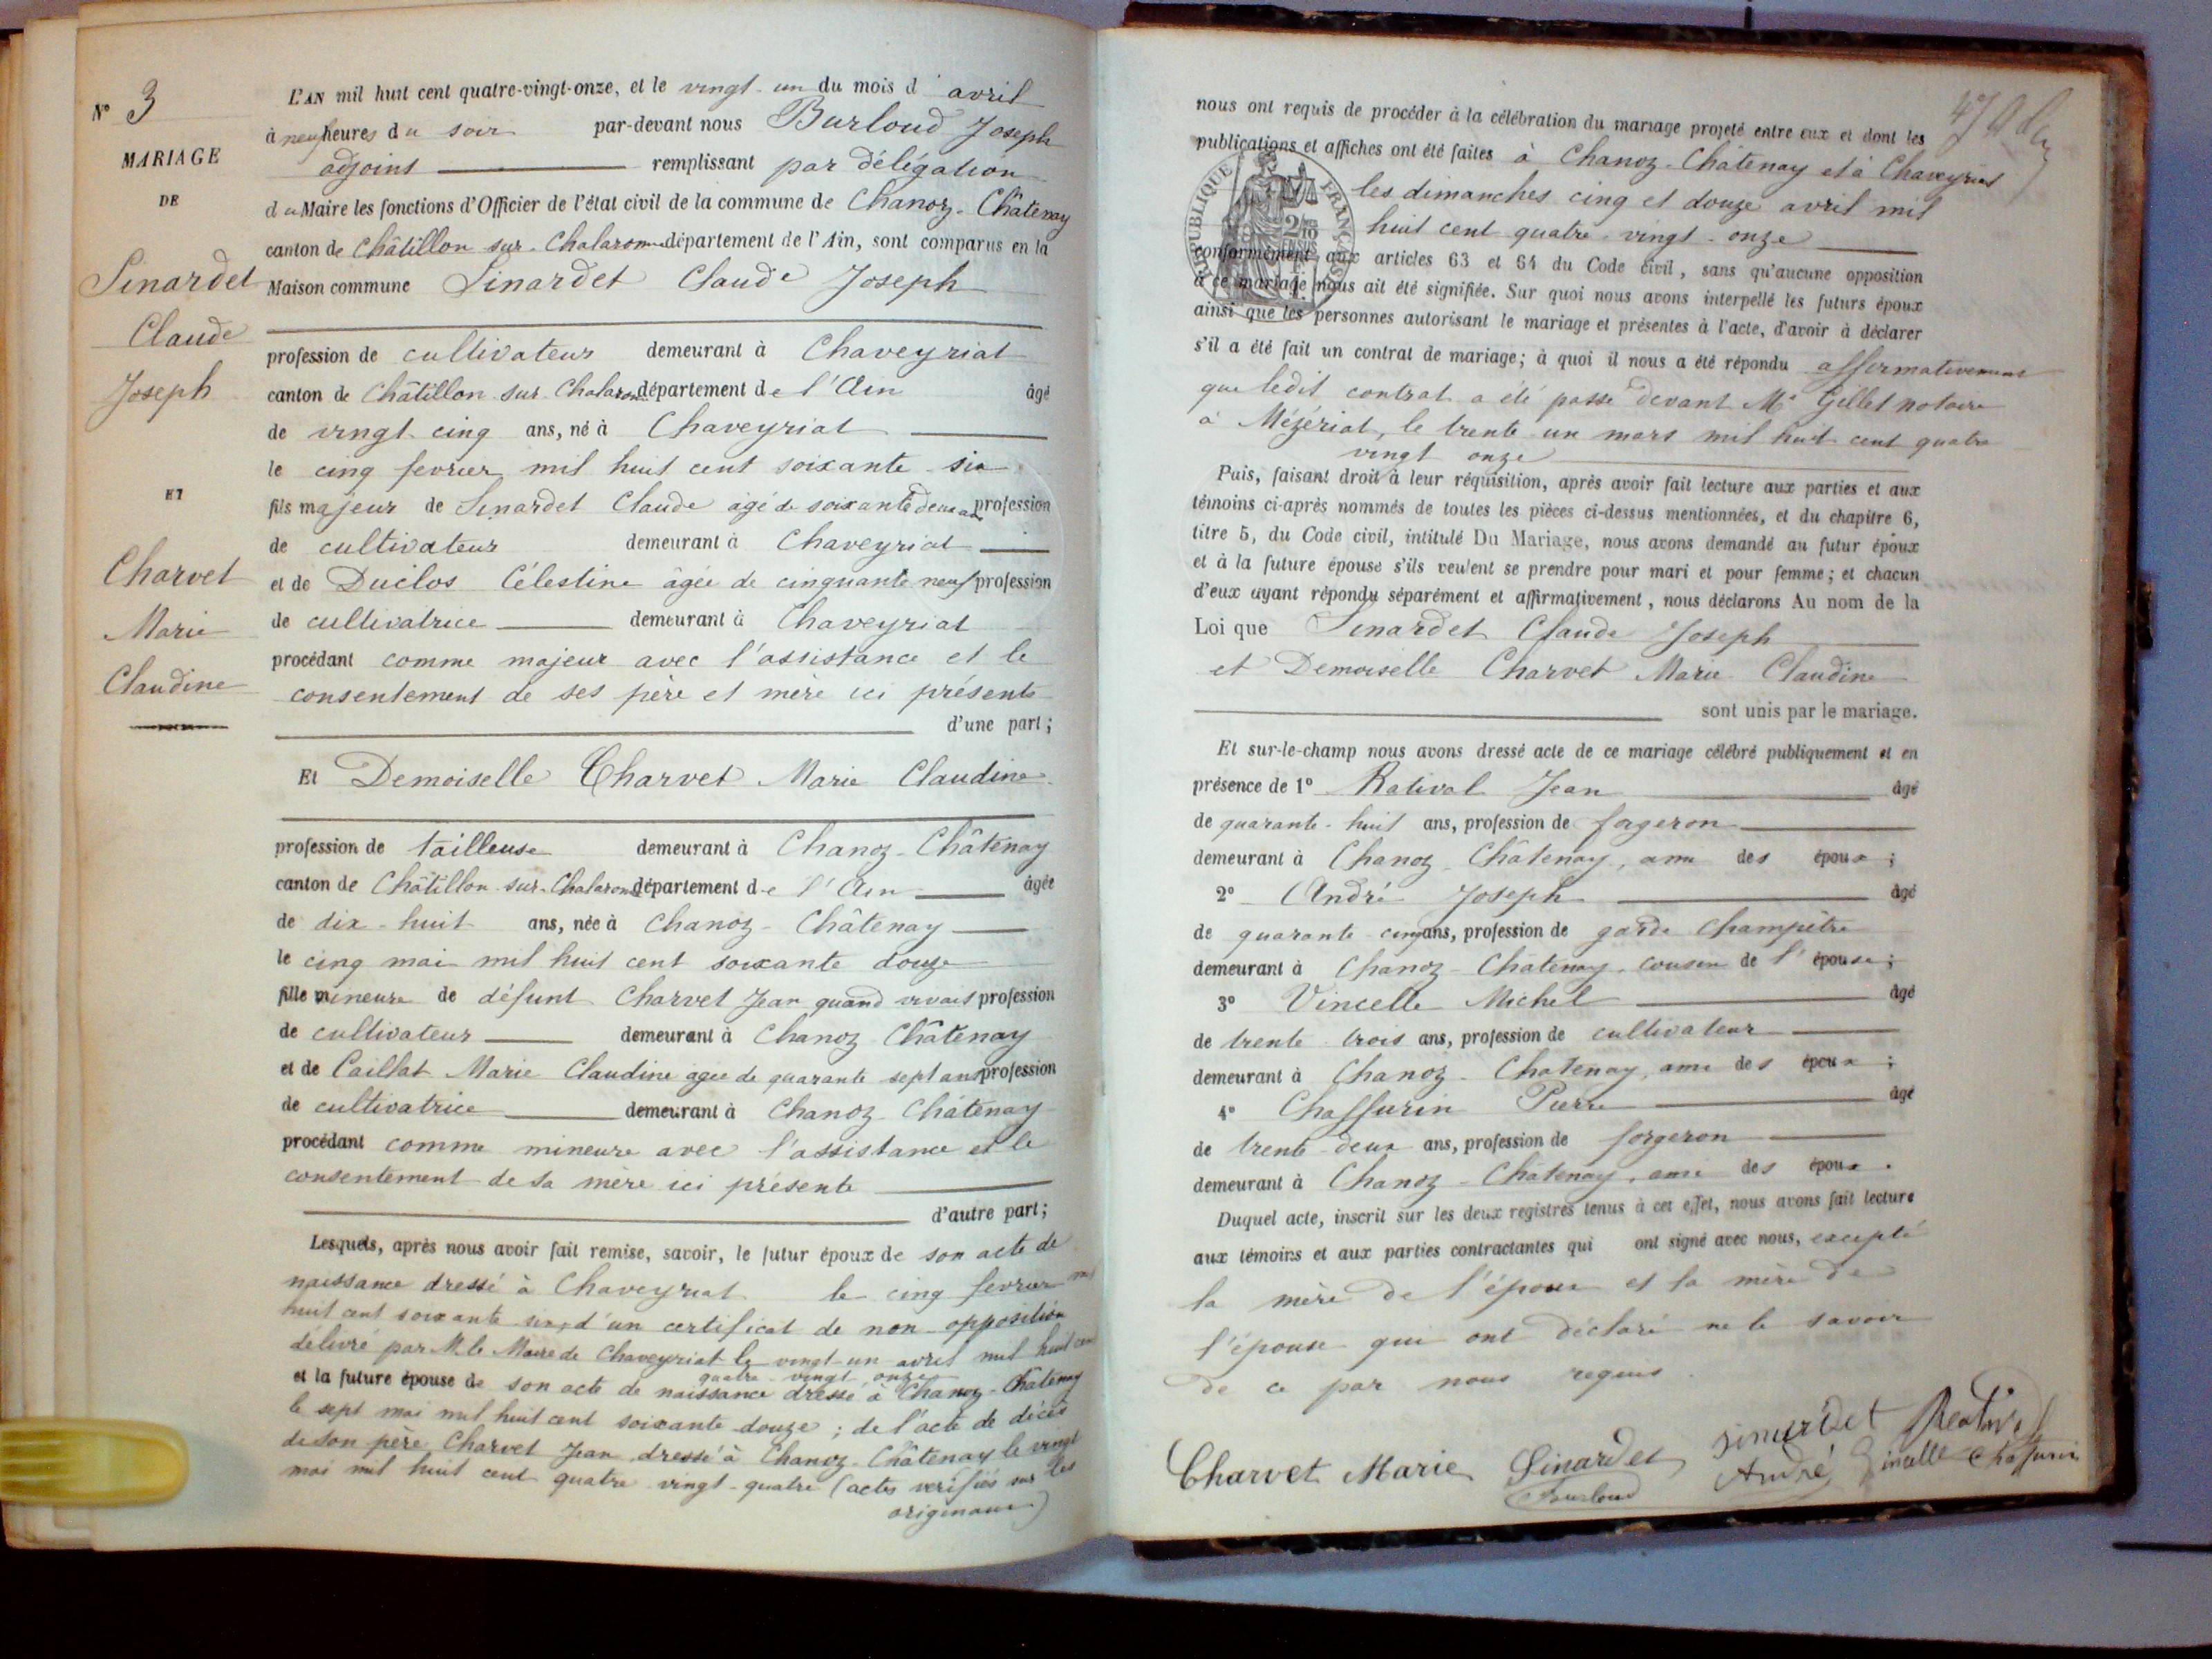 N° 3
MARIAGE
DE
Sinardet
Claude
Joseph
ET
Charvet
Marie
Claudine
L'AN mil huit cent quatre-vingt-onze, et le vingt-un du mois d'avril
à neuf heures du soir par-devant nous Burloud Joseph
adjoint remplissant par délégation
du Maire les fonctions d'Officier de l'état civil de la commune de Chanoz-Châtenay
canton de Châtillon-sur-Chalaronne département de l'Ain, sont comparus en la
Maison commune Sinardet Claude Joseph
profession de cultivateur demeurant à Chaveyriat
canton de Châtillon-sur-Chalaronne département de l'Ain âgé
de vingt cinq ans, né à Chaveyriat
le cinq fevrier mil huit cent soixante-six
fils majeur de Sinardet Claude âgé de soixante deux ans profession
de cultivateur demeurant à Chaveyriat
et de Duclos Célestine âgée de cinquante neuf profession
de cultivatrice demeurant à Chaveyriat
procédant comme majeur avec l'assistance et le
consentement de ses père et mère ici présents
d'une part;
Et Demoiselle Charvet Marie Claudine
profession de tailleuse demeurant à Chanoz-Châtenay
canton de Châtillon-sur-Chalaronne département de l'Ain âgée
de dix-huit ans, née à Chanoz-Châtenay
le cinq mai mil huit cent soixante douze
fille mineure de défunt Charvet Jean quand vivait profession
de cultivateur demeurant à Chanoz Châtenay
et de Caillat Marie Claudine agée de quarante sept ans profession
de cultivatrice demeurant à Chanoz-Châtenay
procédant comme mineure avec l'assistance et le
consentement de sa mère ici présente
d'autre part;
Lesquels, après nous avoir fait remise, savoir, le futur époux de son acte de
naissance dressé à Chaveyriat le cinq fevrier mil
huit cent soixante-six, d'un certificat de non-opposition
délivré par M. le Maire de Chaveyriat le vingt-un avril mil huit cent
quatre-vingt onze
et la future épouse de son acte de naissance dressé à Chanoz-Châtenay
le sept mai mil huit cent soixante-douze; de l'acte de décès
de son père Charvet Jean dressé à Chanoz-Châtenay le vingt
mai mil huit cent quatre-vingt-quatre (actes vérifiés sur les
originaux)
nous ont requis de procéder à la célébration du mariage projeté entre eux et dont les
publications et affiches ont été faites à Chanoz-Châtenay et à Chaveyriat
les dimanches cinq et douze avril mil
huit cent quatre-vingt-onze
RÉPUBLIQUE FRANÇAISE
conformément aux articles 63 et 64 du Code civil, sans qu'aucune opposition
à ce mariage nous ait été signifiée. Sur quoi nous avons interpellé les futurs époux
ainsi que les personnes autorisant le mariage et présentes à l'acte, d'avoir à déclarer
s'il a été fait un contrat de mariage; à quoi il nous a été répondu affirmativement
que ledit contrat a été passé devant Me Gillet notaire
à Mézériat, le trente-un mars mil huit cent quatre
vingt onze
Puis, faisant droit à leur réquisition, après avoir fait lecture aux parties et aux
témoins ci-après nommés de toutes les pièces ci-dessus mentionnées, et du chapitre 6,
titre 5, du Code civil, intitulé Du Mariage, nous avons demandé au futur époux
et à la future épouse s'ils veulent se prendre pour mari et pour femme; et chacun
d'eux ayant répondu séparément et affirmativement, nous déclarons Au nom de la
Loi que Sinardet Claude Joseph
et Demoiselle Charvet Marie Claudine
sont unis par le mariage.
Et sur-le-champ nous avons dressé acte de ce mariage célébré publiquement et en
présence de 1° Rativat Jean âgé
de quarante-huit ans, profession de forgeron
demeurant à Chanoz-Châtenay, ami des époux;
2° André Joseph âgé
de quarante cinq ans, profession de garde Champêtre
demeurant à Chanoz-Châtenay, cousin de l'épouse;
3° Vincelle Michel âgé
de trente trois ans, profession de cultivateur
demeurant à Chanoz-Chatenay, ami des époux;
4° Chaffurin Pierre âgé
de trente-deux ans, profession de forgeron
demeurant à Chanoz-Châtenay, ami des époux.
Duquel acte, inscrit sur les deux registres tenus à cet effet, nous avons fait lecture
aux témoins et aux parties contractantes qui ont signé avec nous, excepté
la mère de l'époux et la mère de
l'épouse qui ont déclaré ne le savoir
de ce par nous requis.
Charvet Marie Sinardet Sinardet Rativat
André Vincelle Chaffurin
Burloud